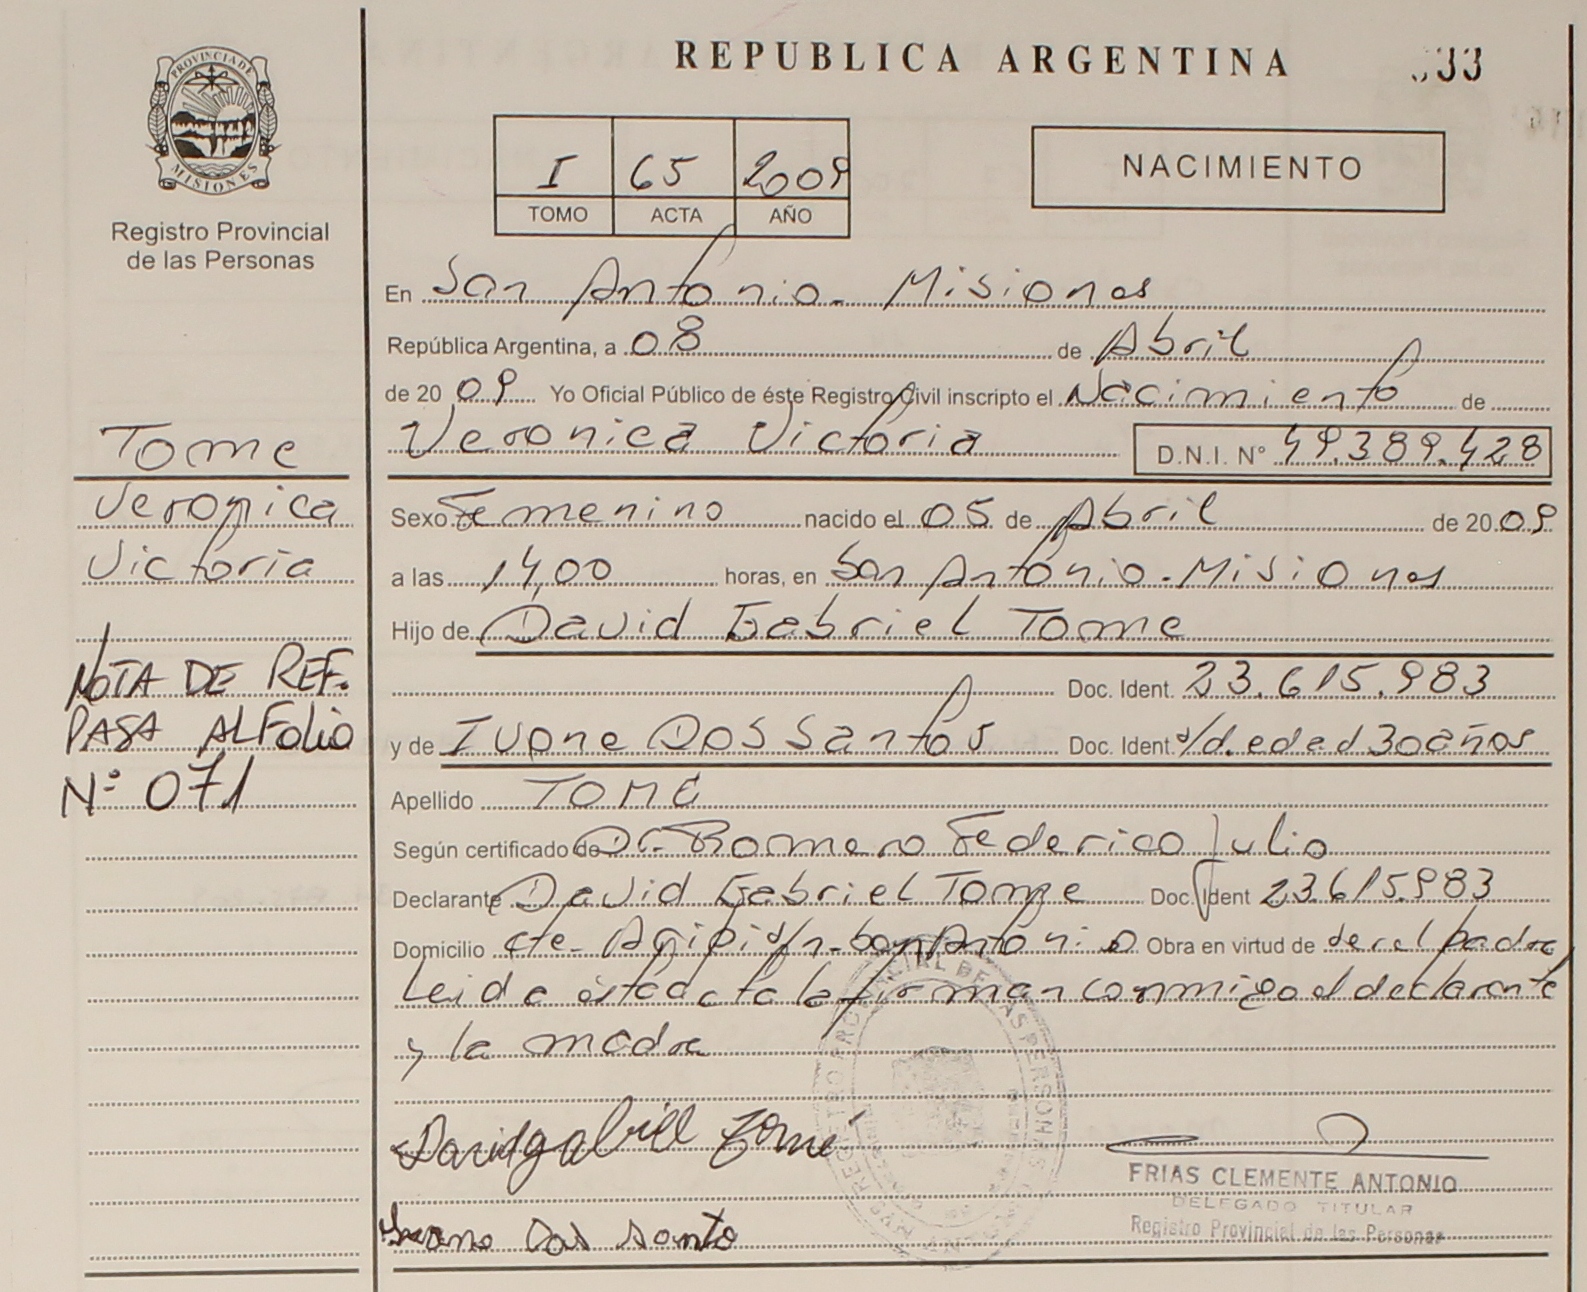 REPUBLICA ARGENTINA
33
PROVINCIA DE
MISIONES
Registro Provincial
de las Personas
I 65 2009
TOMO ACTA AÑO
NACIMIENTO
En San Antonio - Misiones
República Argentina, a 08 de Abril
de 20 09 Yo Oficial Público de éste Registro Civil inscripto el Nacimiento de
Veronica Victoria D.N.I. N° 49.389.428
Sexo Femenino nacido el 05 de Abril de 20 09
a las 14,00 horas, en San Antonio - Misiones
Hijo de David Gabriel Tome
Doc. Ident. 23.615.983
y de Ivone Dos Santos Doc. Ident. s/d. edad 30 años
Apellido TOME
Según certificado de Dr. Romero Federico Julio
Declarante David Gabriel Tome Doc. Ident 23.615.983
Domicilio Cte- s/n - San Antonio Obra en virtud de ser el padre
Leida esta acta la firman conmigo el declarante
y la madre
Tome
Veronica
Victoria
NOTA DE REF.
PASA AL FOLIO
N° 071
David gabriel Tomé
dos santo
REGISTRO PROVINCIAL DE LAS PERSONAS
FRIAS CLEMENTE ANTONIO
DELEGADO TITULAR
Registro Provincial de las Personas